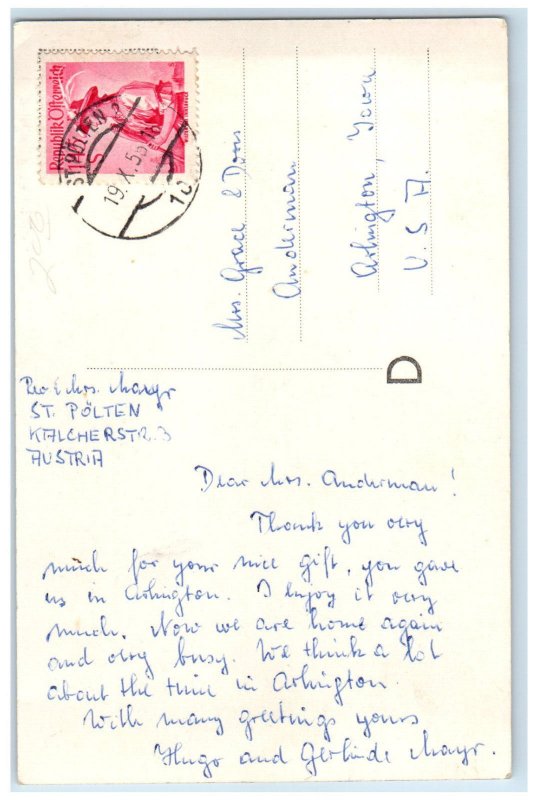 Republik Österreich
ST. PÖLTEN 2
19.X.55
Mrs. Grace & Doris
Anderman
Arlington, Iowa
U.S.A.
D
Rev & Mrs. Mayr
ST. PÖLTEN
KALCHERSTR. 3
AUSTRIA
Dear Mrs. Anderman!
Thank you very
much for your nice gift, you gave
us in Arlington. I enjoy it very
much. Now we are home again
and very busy. We think a lot
about the time in Arlington.
With many greetings yours
Hugo and Gerlinde Mayr.